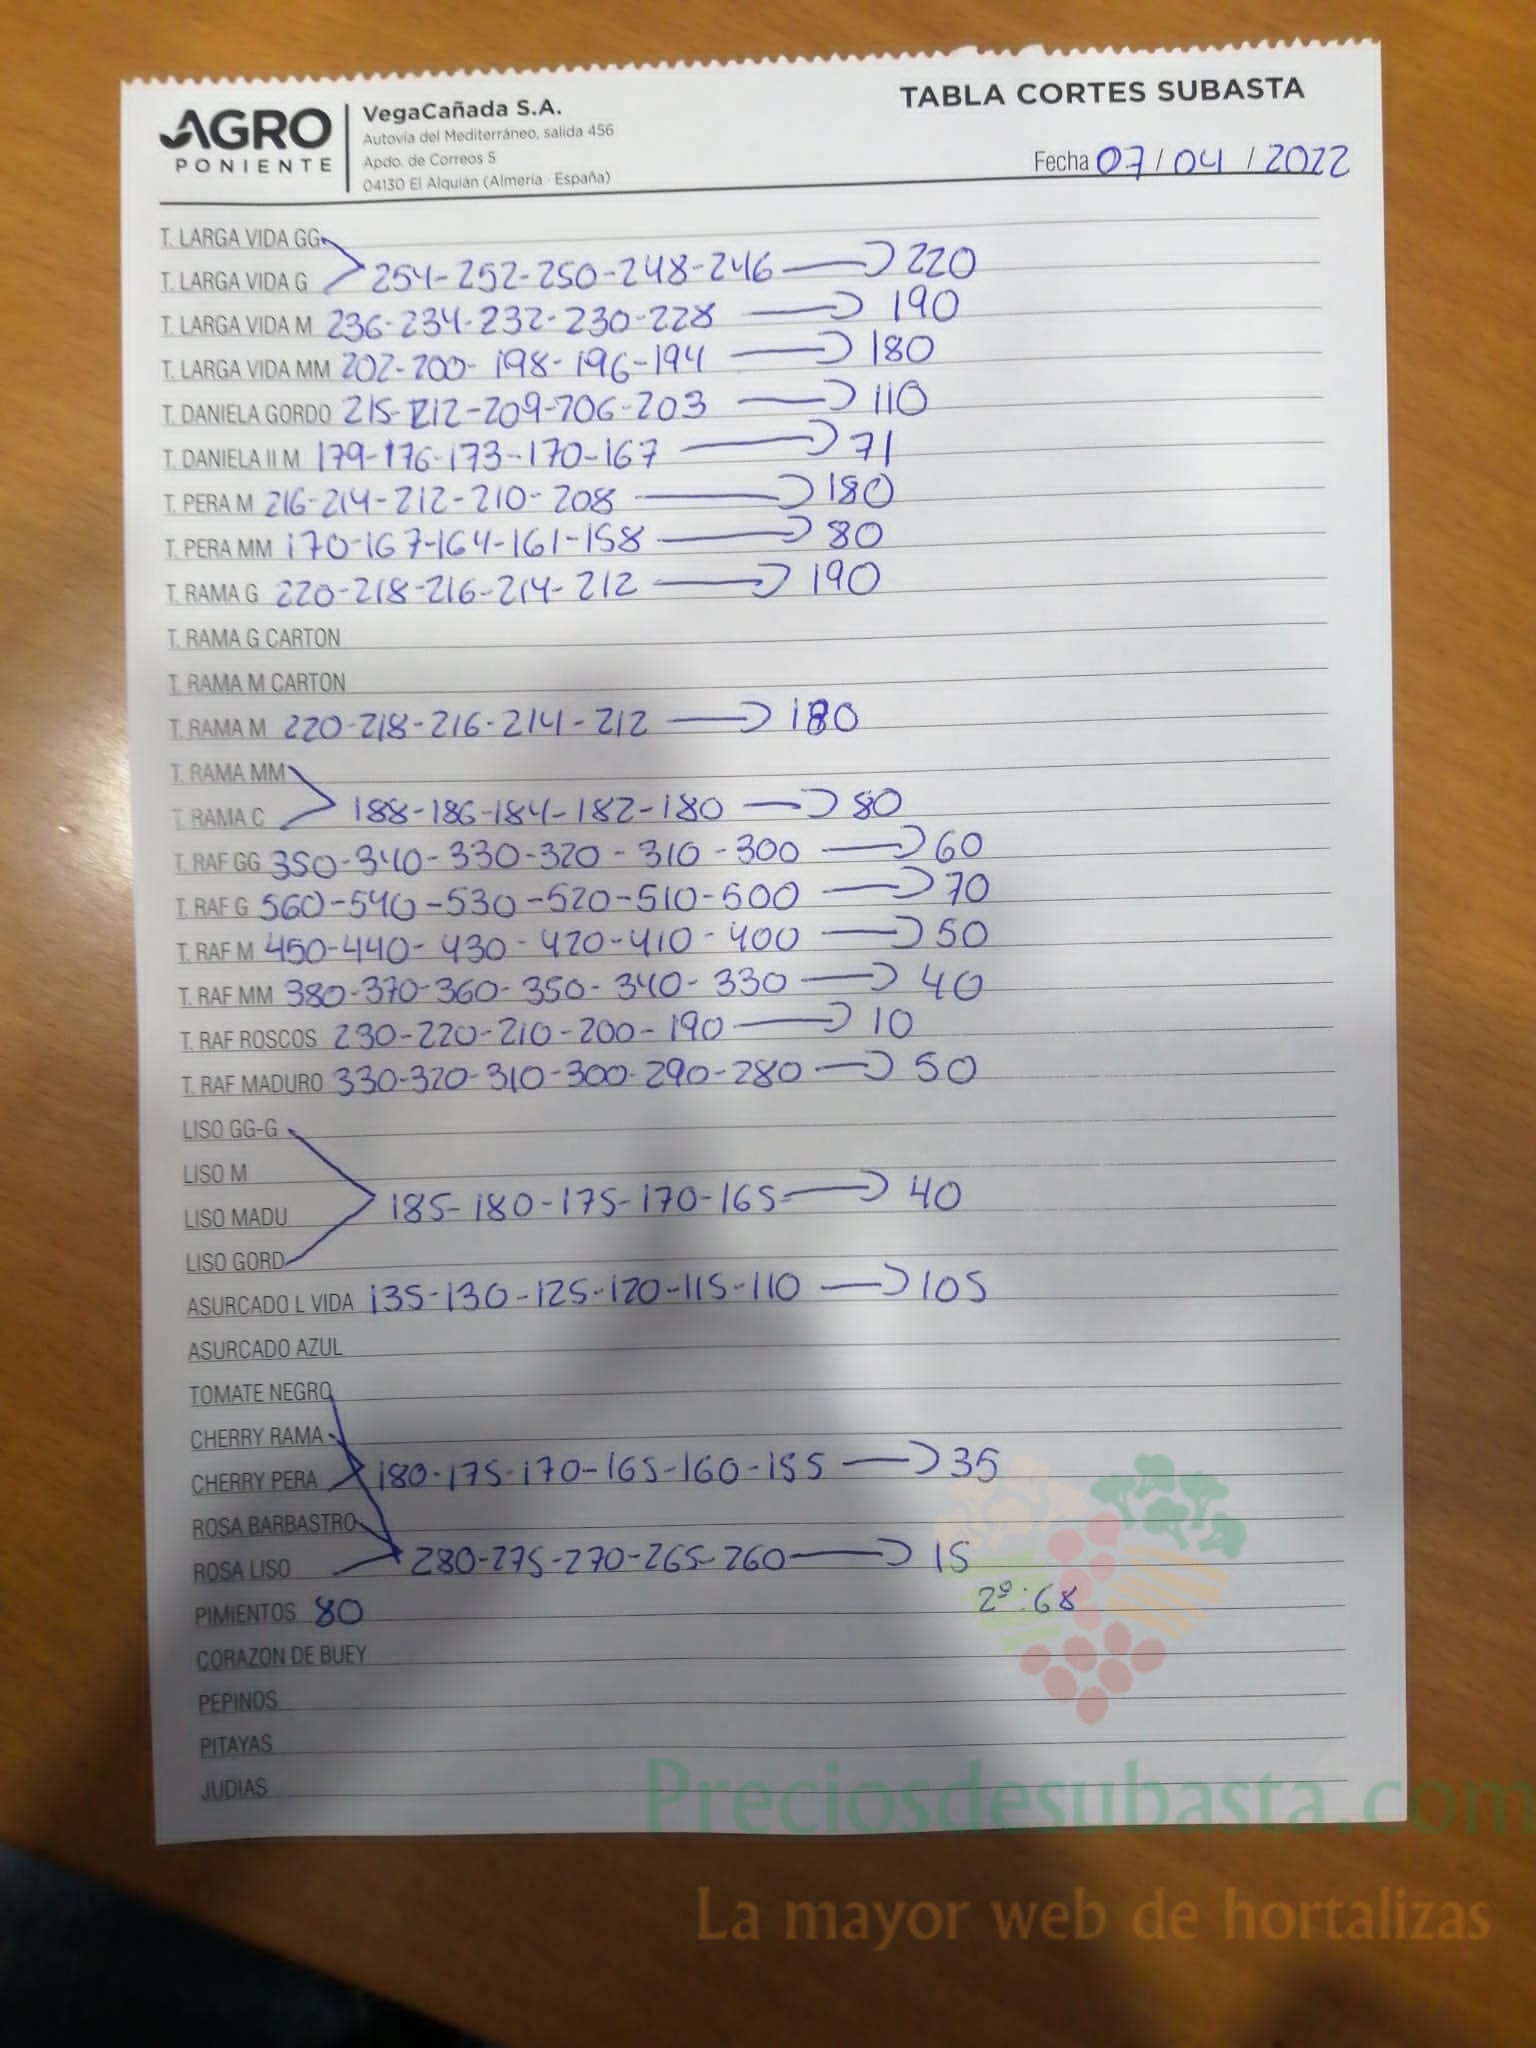 AGRO
PONIENTE
VegaCañada S.A.
Autovía del Mediterráneo, salida 456
Apdo. de Correos 5
04130 El Alquián (Almería · España)
TABLA CORTES SUBASTA
Fecha 07/04/2022
T. LARGA VIDA GG
T. LARGA VIDA G 254-252-250-248-246 → 220
T. LARGA VIDA M 236-234-232-230-228 → 190
T. LARGA VIDA MM 202-200-198-196-194 → 180
T. DANIELA GORDO 215-212-209-206-203 → 110
T. DANIELA II M 179-176-173-170-167 → 71
T. PERA M 216-214-212-210-208 → 180
T. PERA MM 170-167-164-161-158 → 80
T. RAMA G 220-218-216-214-212 → 190
T. RAMA G CARTON
T. RAMA M CARTON
T. RAMA M 220-218-216-214-212 → 180
T. RAMA MM
T. RAMA C 188-186-184-182-180 → 80
T. RAF GG 350-340-330-320-310-300 → 60
T. RAF G 560-540-530-520-510-500 → 70
T. RAF M 450-440-430-420-410-400 → 50
T. RAF MM 380-370-360-350-340-330 → 40
T. RAF ROSCOS 230-220-210-200-190 → 10
T. RAF MADURO 330-320-310-300-290-280 → 50
LISO GG-G
LISO M
LISO MADU 185-180-175-170-165 → 40
LISO GORD
ASURCADO L VIDA 135-130-125-120-115-110 → 105
ASURCADO AZUL
TOMATE NEGRO
CHERRY RAMA
CHERRY PERA 180-175-170-165-160-155 → 35
ROSA BARBASTRO
ROSA LISO 280-275-270-265-260 → 15
PIMIENTOS 80 2º:68
CORAZON DE BUEY
PEPINOS
PITAYAS
JUDIAS
Preciosdesubasta.com
La mayor web de hortalizas